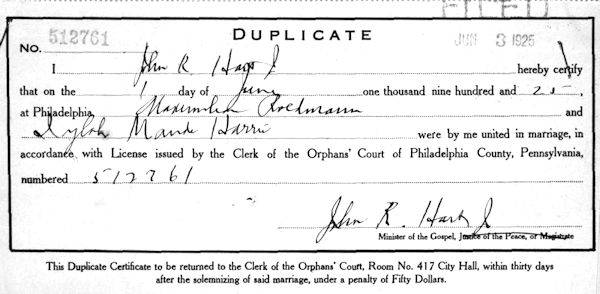 FILED
512761
DUPLICATE
JUN 3 1925
NO.
I John R Hart Jr hereby certify
that on the 1 day of June one thousand nine hundred and 25,
at Philadelphia, Maximilian and
Maude Harris were by me united in marriage, in
accordance with License issued by the Clerk of the Orphans' Court of Philadelphia County, Pennsylvania,
numbered 512761
John R. Hart Jr
Minister of the Gospel, Justice of the Peace, or Magistrate
This Duplicate Certificate to be returned to the Clerk of the Orphans' Court, Room No. 417 City Hall, within thirty days
after the solemnizing of said marriage, under a penalty of Fifty Dollars.